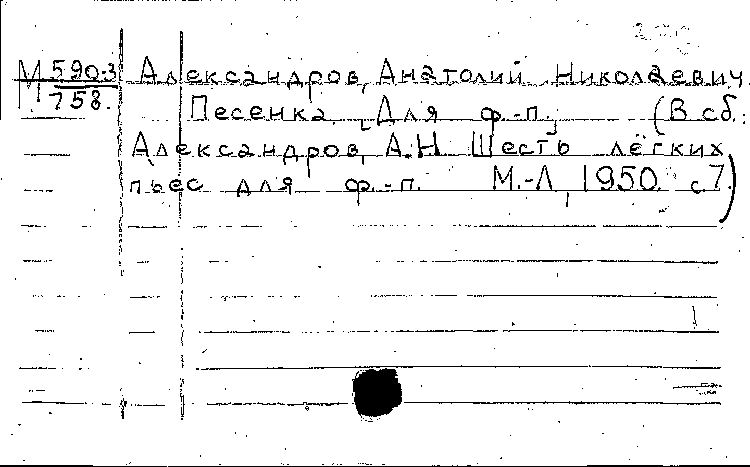 М 590-3
758.
Александров, Анатолий Николаевич.
Песенка. [Для ф.-п.] (В сб.:
Александров, А.Н. Шесть лёгких
пьес для ф.-п. М.-Л., 1950. с. 7.)